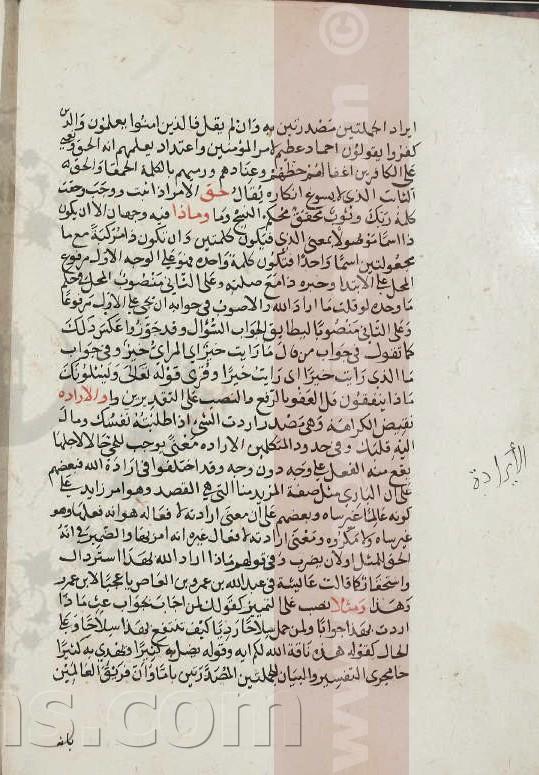 ايراد الجملتين مصدرتين به وان لم يقل فالذين امنوا يعلمون والذين
كفروا يقولون احماد عظيم لامر المؤمنين واعتداد بعلمهم انه الحق ونعي
على الكافرين اغفالهم حظهم وعنادهم ورميهم بالكلمة الحمقا والحق
الثابت الذي لا يسوغ انكاره يقال حق الامر اذا ثبت ووجب وحقت
كلمة ربك وثوب محقق محكم النسج وماذا فيه وجهان الا ان يكون
ذا اسما موصولا بمعنى الذي فيكون كلمتين وان تكون ذا مركبة مع ما
مجعولتين اسما واحدا فتكون كلمة واحده فهو على الوجه الاول مرفوع
المحل على الابتدا وخبره ذا مع صلته وعلى الثاني منصوب المحل في حكم
ما وحده لو قلت ما اراد الله والاصوب في جوابه ان يجي على الاول مرفوعا
وعلى الثاني منصوبا ليطابق الجواب السؤال وقد جوزوا عكس ذلك
كما تقول في جواب من قال ما رايت خير اي المرئ خير وفي جواب
ما الذي رايت خيرا اي رايت خيرا وقرى قوله تعالى ويسئلونك
ماذا ينفقون قل العفو بالرفع والنصب على التقديرين والاراده
نقيض الكراهة وهي مصدر اردت الشئ اذا طلبته نفسك ومال
اليه قلبك وفي حدود المتكلمين الاراده معنى يوجب للحي حالا لاجلها
يقع منه الفعل على وجه دون وجه وقد اختلفوا في ارادة الله فبعضهم
على ان للباري مثل صفة المريد منا التي هي القصد وهو امر زايد على
كونه عالما غير ساه وبعضهم على ان معنى ارادته لافعاله هو انه فعلها وهو
غير ساه ولا مكره ومعنى ارادته لافعال غيره انه امر بها والضمير في انه
الحق للمثل او لان يضرب وفي قولهم ماذا اراد الله بهذا استرذال
واستحقار كما قالت عائشة في عبد الله بن عمرو بن العاص يا عجبا لابن عمرو
هذا ومثلا نصب على التمييز كقولك لمن اجاب بجواب غث ماذا
اردت بهذا جوابا ولمن حمل سلاحا رديا كيف تنتفع بهذا سلاحا وعلى
الحال كقوله هذه ناقة الله لكم ايه وقوله يضل به كثيرا ويهدي به كثيرا
جار مجرى التفسير والبيان للجملتين المصدرتين باما وان فريق العالمين
بانه
الأيرادة